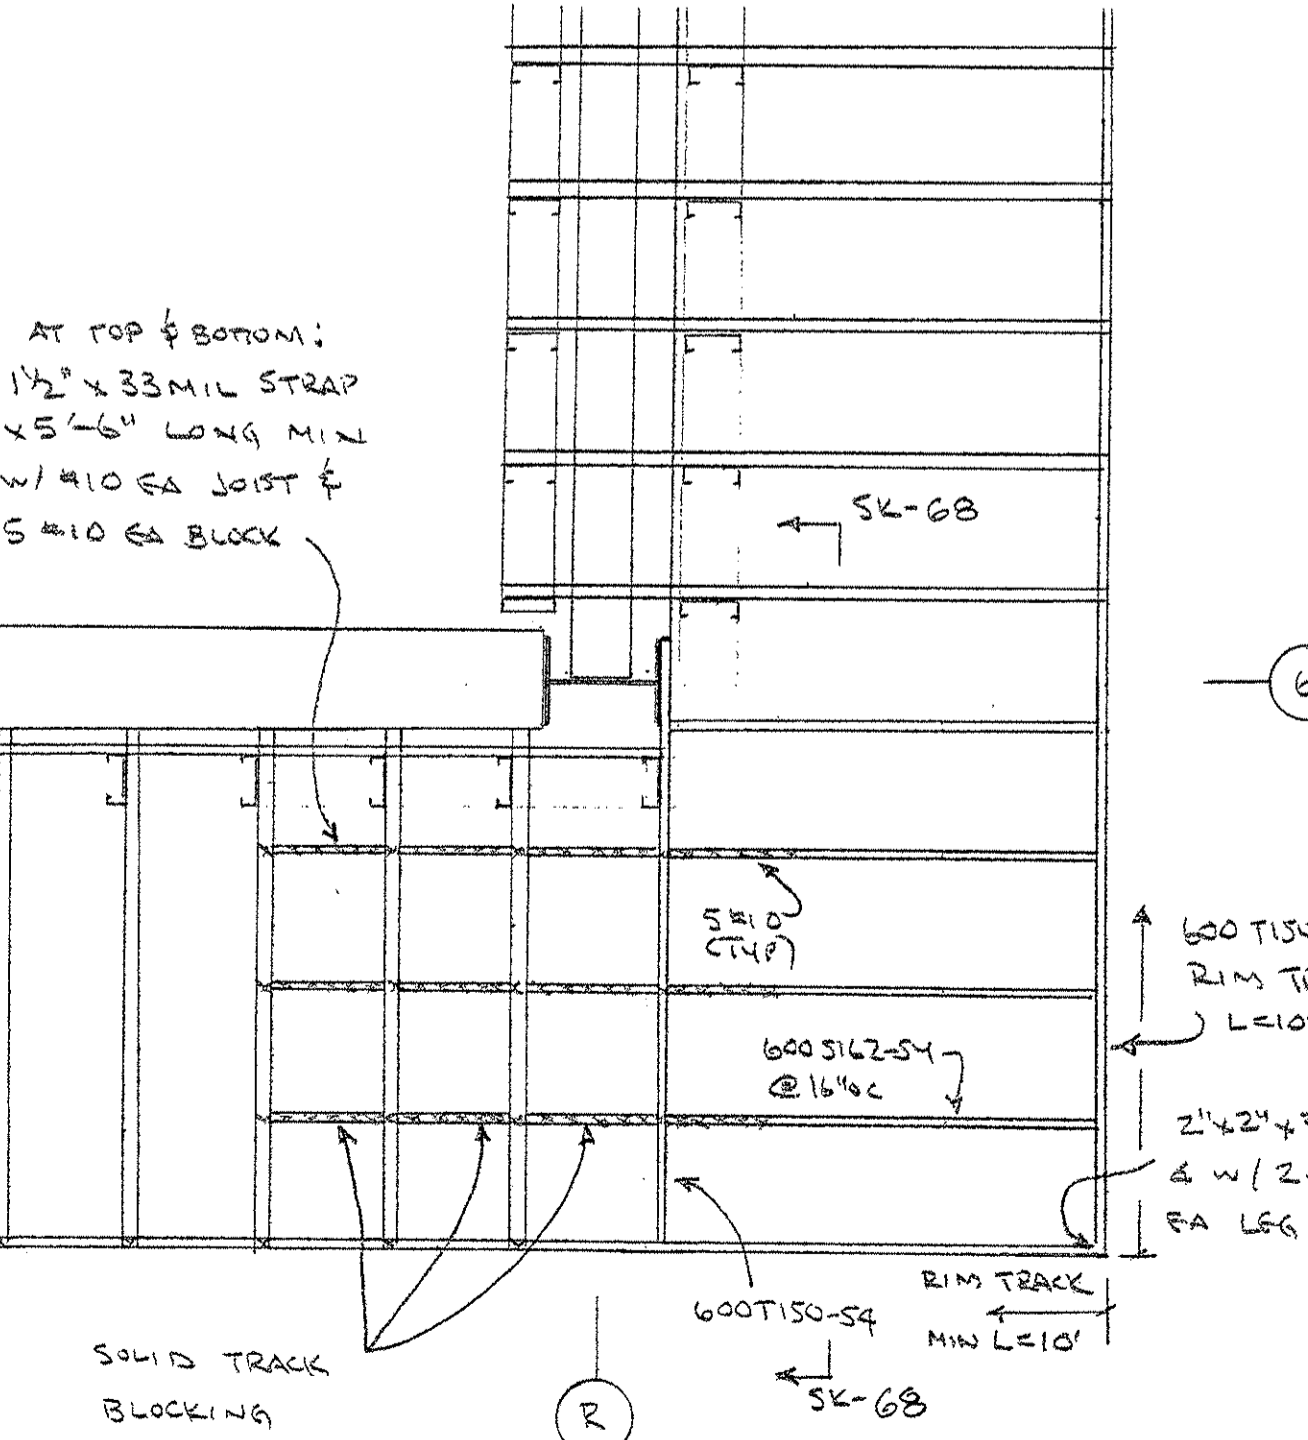 AT TOP & BOTTOM:
1½" x 33 MIL STRAP
x 5'-6" LONG MIN
W/ #10 EA JOIST &
5 #10 EA BLOCK
SK-68
6
5 #10
(TYP)
600 T150
RIM
L=10'
600S162-54
@ 16" OC
2"x2"x
∠ W/ 2
EA LEG
RIM TRACK
MIN L=10'
600T150-54
SOLID TRACK
BLOCKING
R
SK-68